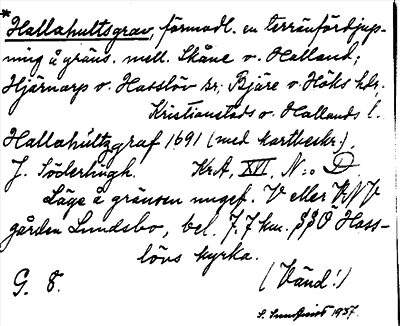 *Hallahultsgrav, förmodl. en terränfördjup-
ning å gräns. mell. Skåne o. Halland;
Hjärnarp o. Hasslöv sr; Bjäre o. Höks hdr.
Kristianstads o. Hallands l.
Hallahultzgraf 1691 (med kartbeskr.).
J. Söderlingh. KrA, XVI, N:o D.
Läge å gränsen ungef. V eller VNV
gården Lundsbo, bel. 7.7 km. SSO Hass-
lövs kyrka.
G. 8. (Vänd!)
S. Sundqvist 1937.